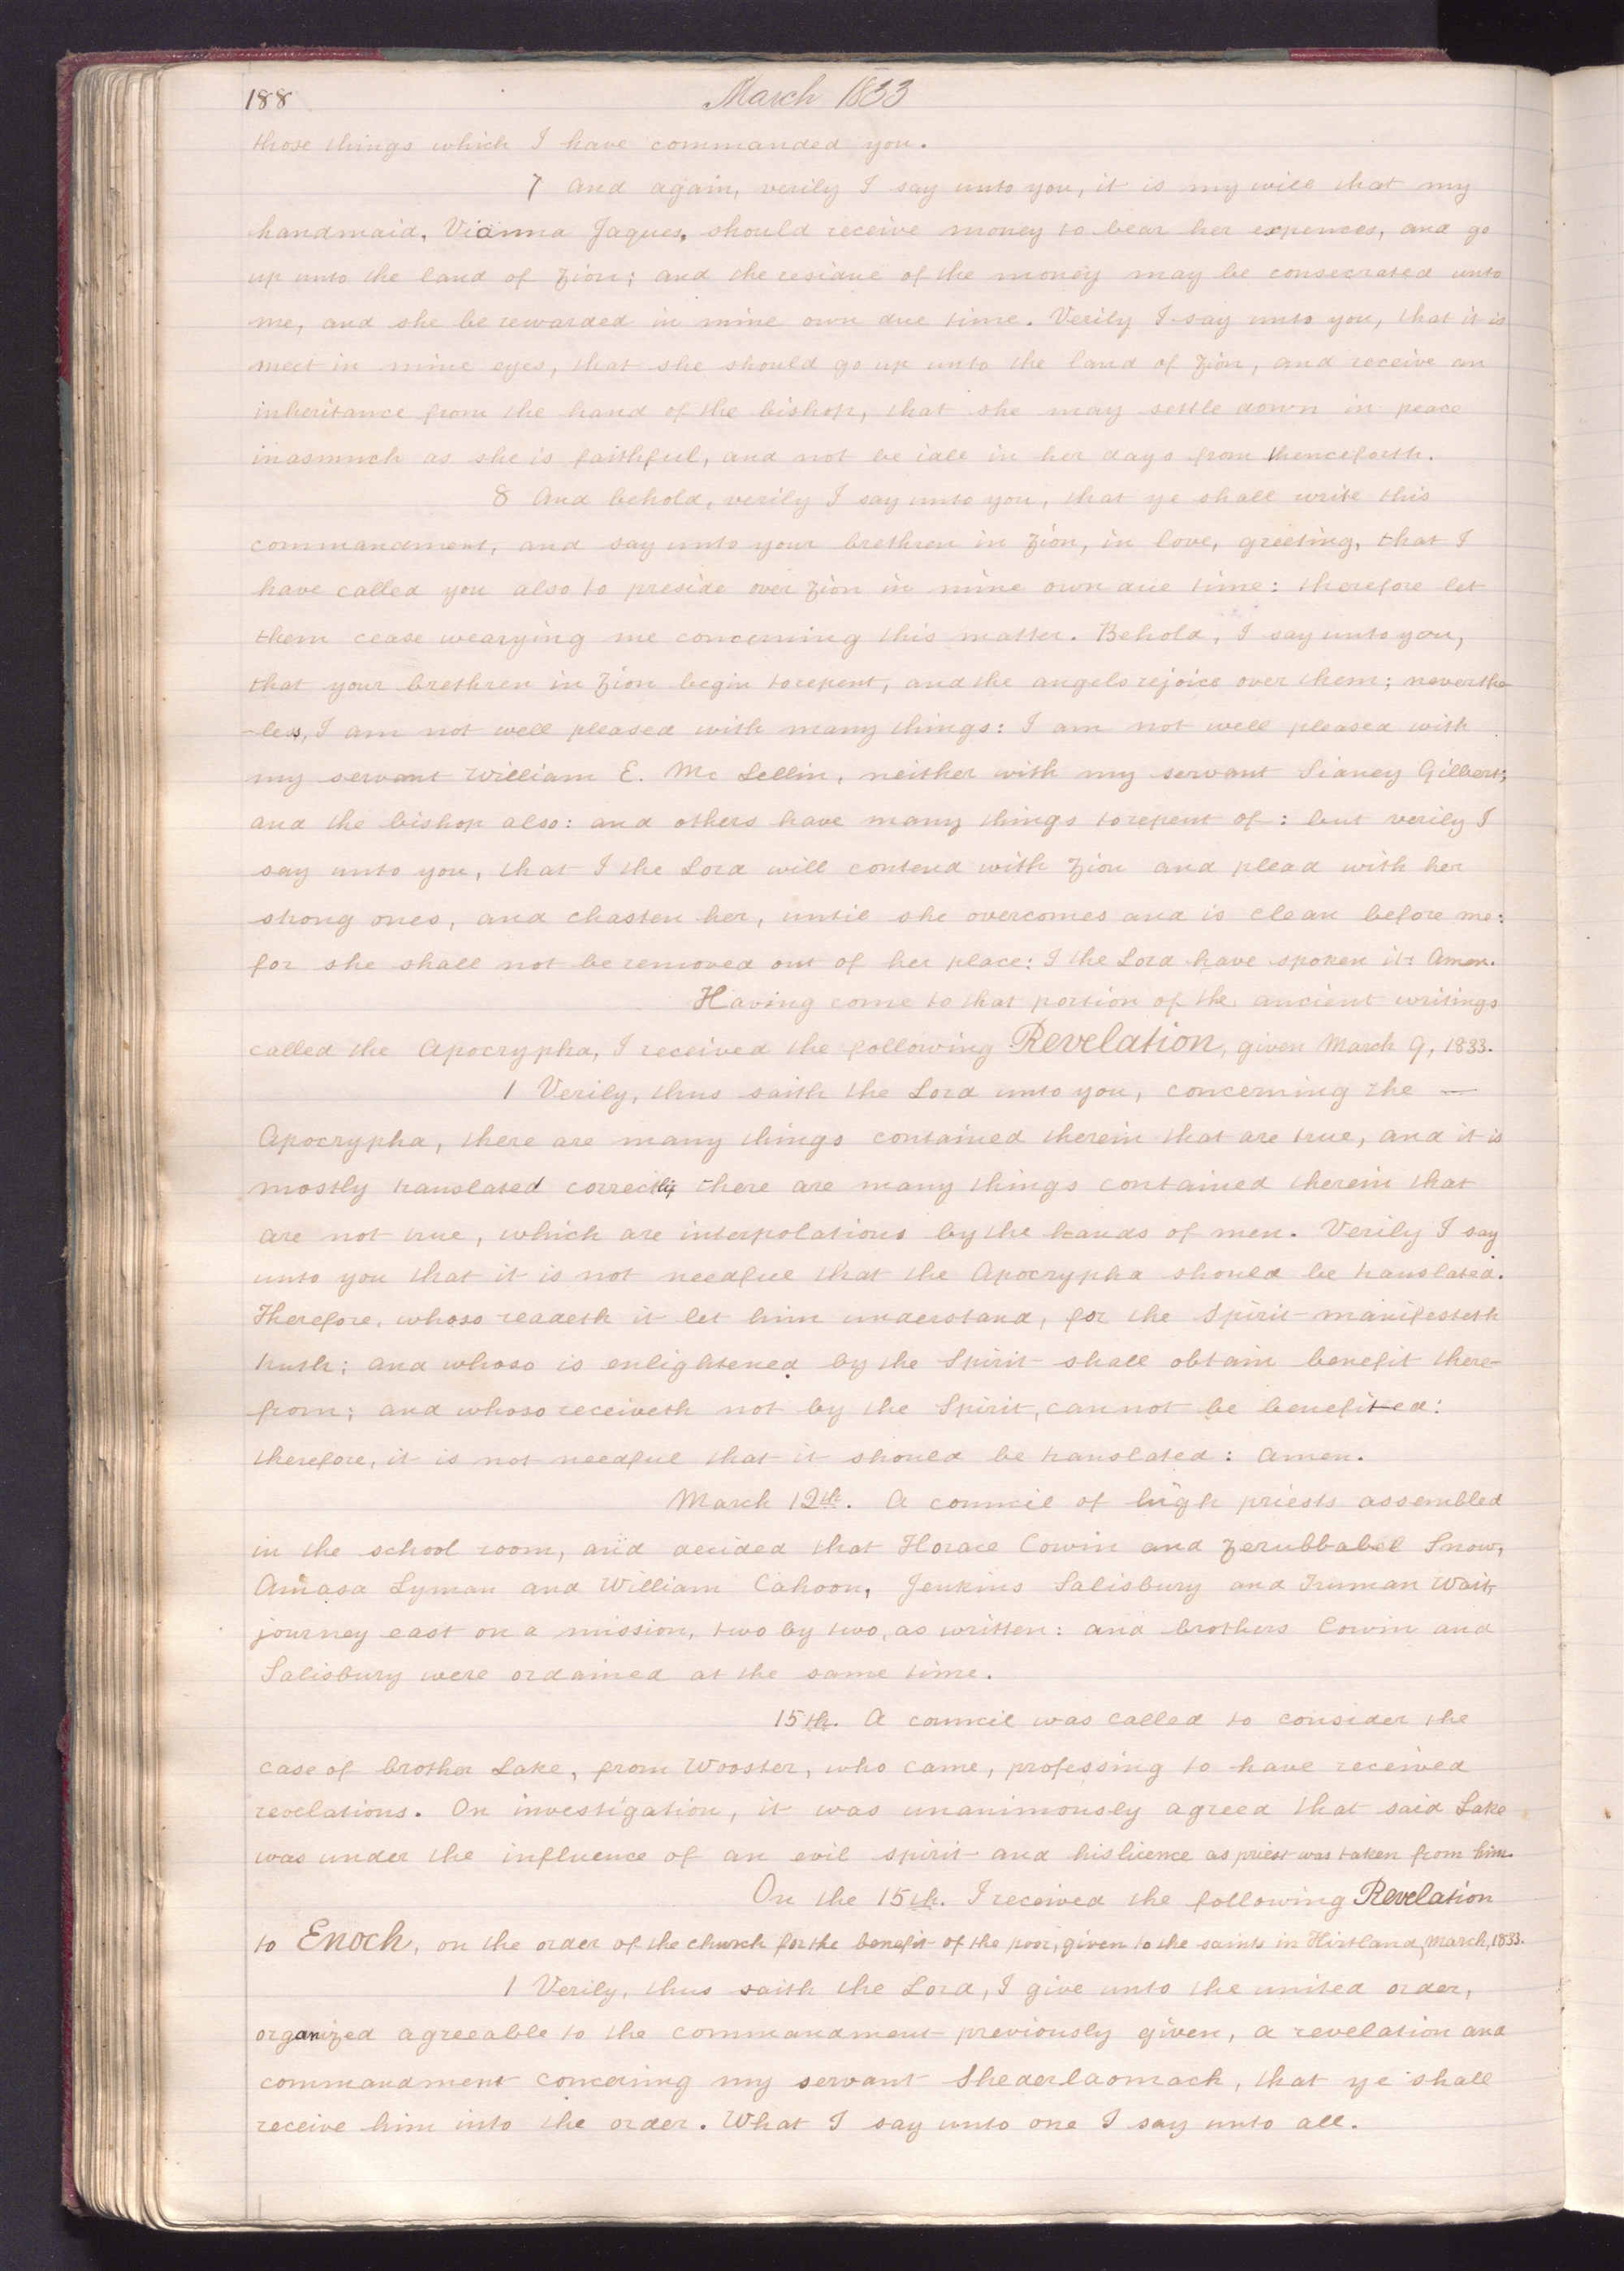 188
March 1833
those things which I have commanded you.
7 And again, verily I say unto you, it is my will that my
handmaid, Vianna Jaques, should receive money to bear her expences, and go
up unto the land of Zion; and the residue of the money may be consecrated unto
me, and she be rewarded in mine own due time. Verily I say unto you, that it is
meet in mine eyes, that she should go up unto the land of Zion, and receive an
inheritance from the hand of the bishop, that she may settle down in peace
inasmuch as she is faithful, and not be idle in her days from thenceforth.
8 And behold, verily I say unto you, that ye shall write this
commandment, and say unto your brethren in Zion, in love, greeting, that I
have called you also to preside over Zion in mine own due time: therefore let
them cease wearying me concerning this matter. Behold, I say unto you,
that your brethren in Zion begin to repent, and the angels rejoice over them; neverthe-
-less, I am not well pleased with many things: I am not well pleased with
my servant William E. Mc Lellin, neither with my servant Sidney Gilbert;
and the bishop also: and others have many things to repent of: but verily I
say unto you, that I the Lord will contend with Zion and plead with her
strong ones, and chasten her, until she overcomes and is clean before me:
for she shall not be removed out of her place: I the Lord have spoken it: Amen.
Having come to that portion of the ancient writings
called the Apocrypha, I received the following Revelation, given March 9, 1833.
1 Verily, thus saith the Lord unto you, concerning the —
Apocrypha, there are many things contained therein that are true, and it is
mostly translated correctly there are many things contained therein that
are not true, which are interpolations by the hands of men. Verily I say
unto you that it is not needful that the Apocrypha should be translated.
Therefore, whoso readeth it let him understand, for the Spirit manifesteth
truth; and whoso is enlightened by the Spirit shall obtain benefit there-
from; and whoso receiveth not by the Spirit, cannot be benefited:
therefore, it is not needful that it should be translated: Amen.
March 12th. A council of high priests assembled
in the school room, and decided that Horace Cowin and Zerubbabel Snow,
Amasa Lyman and William Cahoon, Jenkins Salisbury and Truman Wait,
journey east on a mission, two by two, as written: and brothers Cowin and
Salisbury were ordained at the same time.
15th. A council was called to consider the
case of brother Lake, from Wooster, who came, professing to have received
revelations. On investigation, it was unanimously agreed that said Lake
was under the influence of an evil spirit and his licence as priest was taken from him.
On the 15th. I received the following Revelation
to Enoch, on the order of the church for the benefit of the poor, given to the saints in Kirtland, March, 1833.
1 Verily, thus saith the Lord, I give unto the united order,
organized agreeable to the commandment previously given, a revelation and
commandment concerning my servant Shederlaomach, that ye shall
receive him into the order. What I say unto one I say unto all.